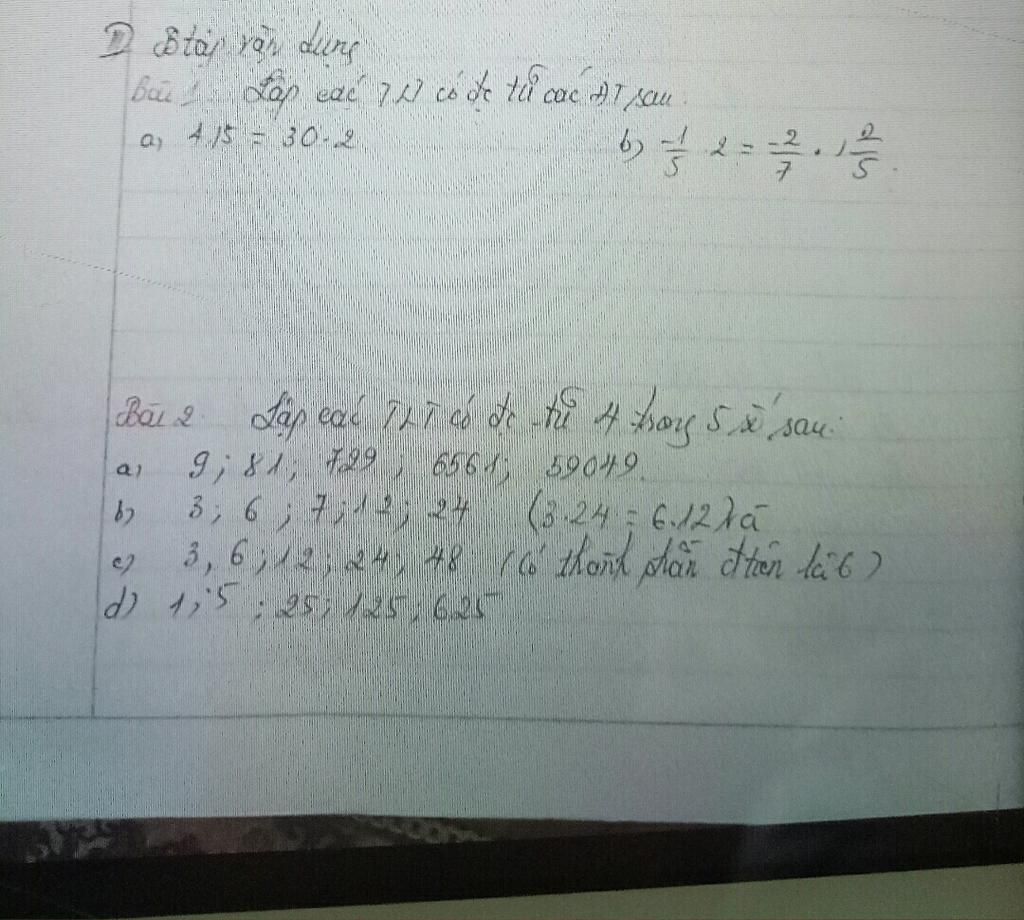 II B tập vận dụng
Bài 1. Lập các TLT có đc từ các ĐT sau.
a) 4.15 = 30.2 b) -1/5 . 2 = -2/7 . 1 2/5.
Bài 2. Lập các TLT có đc từ 4 trong 5 số sau:
a) 9; 81; 729; 6561; 59049.
b) 3; 6; 7; 12; 24 (3.24 = 6.12)
c) 3, 6; 12; 24; 48 (có thành phần là 6)
d) 1; 5; 25; 125; 625